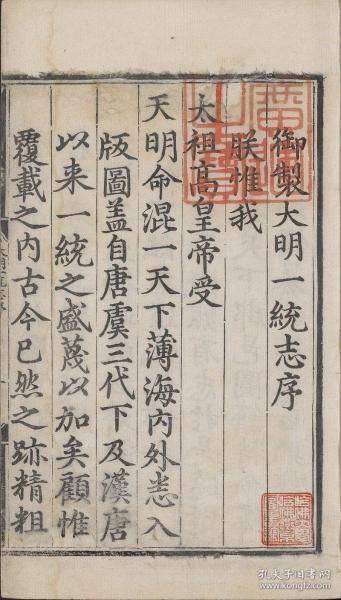 御製大明一統志序
朕惟我
太祖髙皇帝受
天明命混一天下薄海内外悉入
版圖盖自唐虞三代下及漢唐
以来一統之盛蔑以加矣顧惟
覆載之内古今已然之跡精粗
孔夫子旧书网